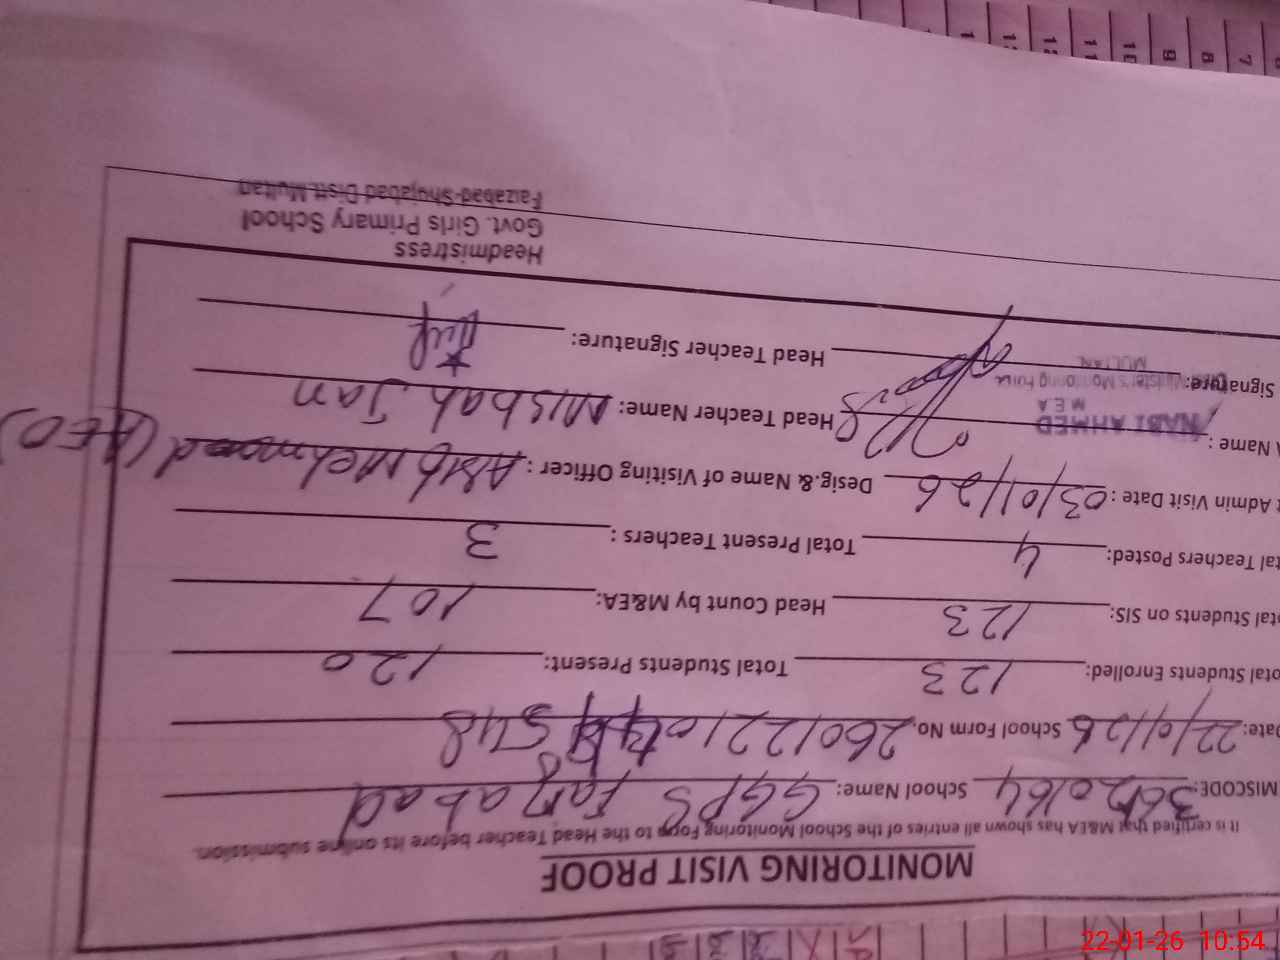 MONITORING VISIT PROOF
It is certified that M&EA has shown all entries of the School Monitoring Form to the Head Teacher before its online submission.
MISCODE: 36120164 School Name: GGPS Faizabad
Date: 22/01/26 School Form No. 548
Total Students Enrolled: 123 Total Students Present: 120
Total Students on SIS: 123 Head Count by M&EA: 107
Total Teachers Posted: 4 Total Present Teachers: 3
t Admin Visit Date: 03/01/26 Desig.& Name of Visiting Officer: Mehmood (AEO)
A Name: NABI AHMED Head Teacher Name: Misbah Jan
M E A
Minister's Monitoring Force
MULTAN
Signature: Head Teacher Signature:
Headmistress
Govt. Girls Primary School
Faizabad-Shujabad Distt.Multan
7 8 9 10 11 12
22-01-26 10:54